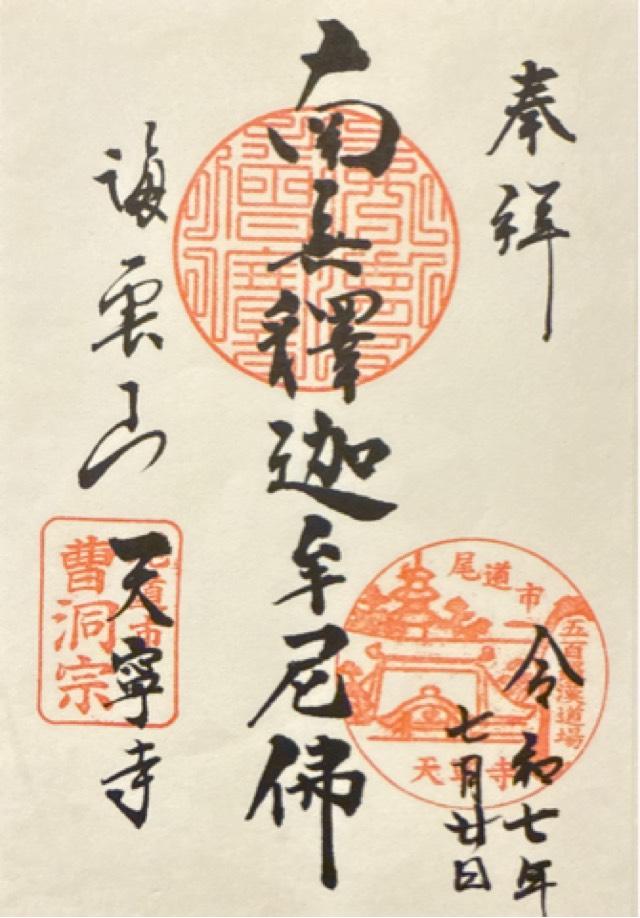 奉拝
令和七年
七月廿日
尾道市
五百羅漢道場
天寧寺
南無釋迦牟尼佛
海雲山
天寧寺
尾道市
曹洞宗